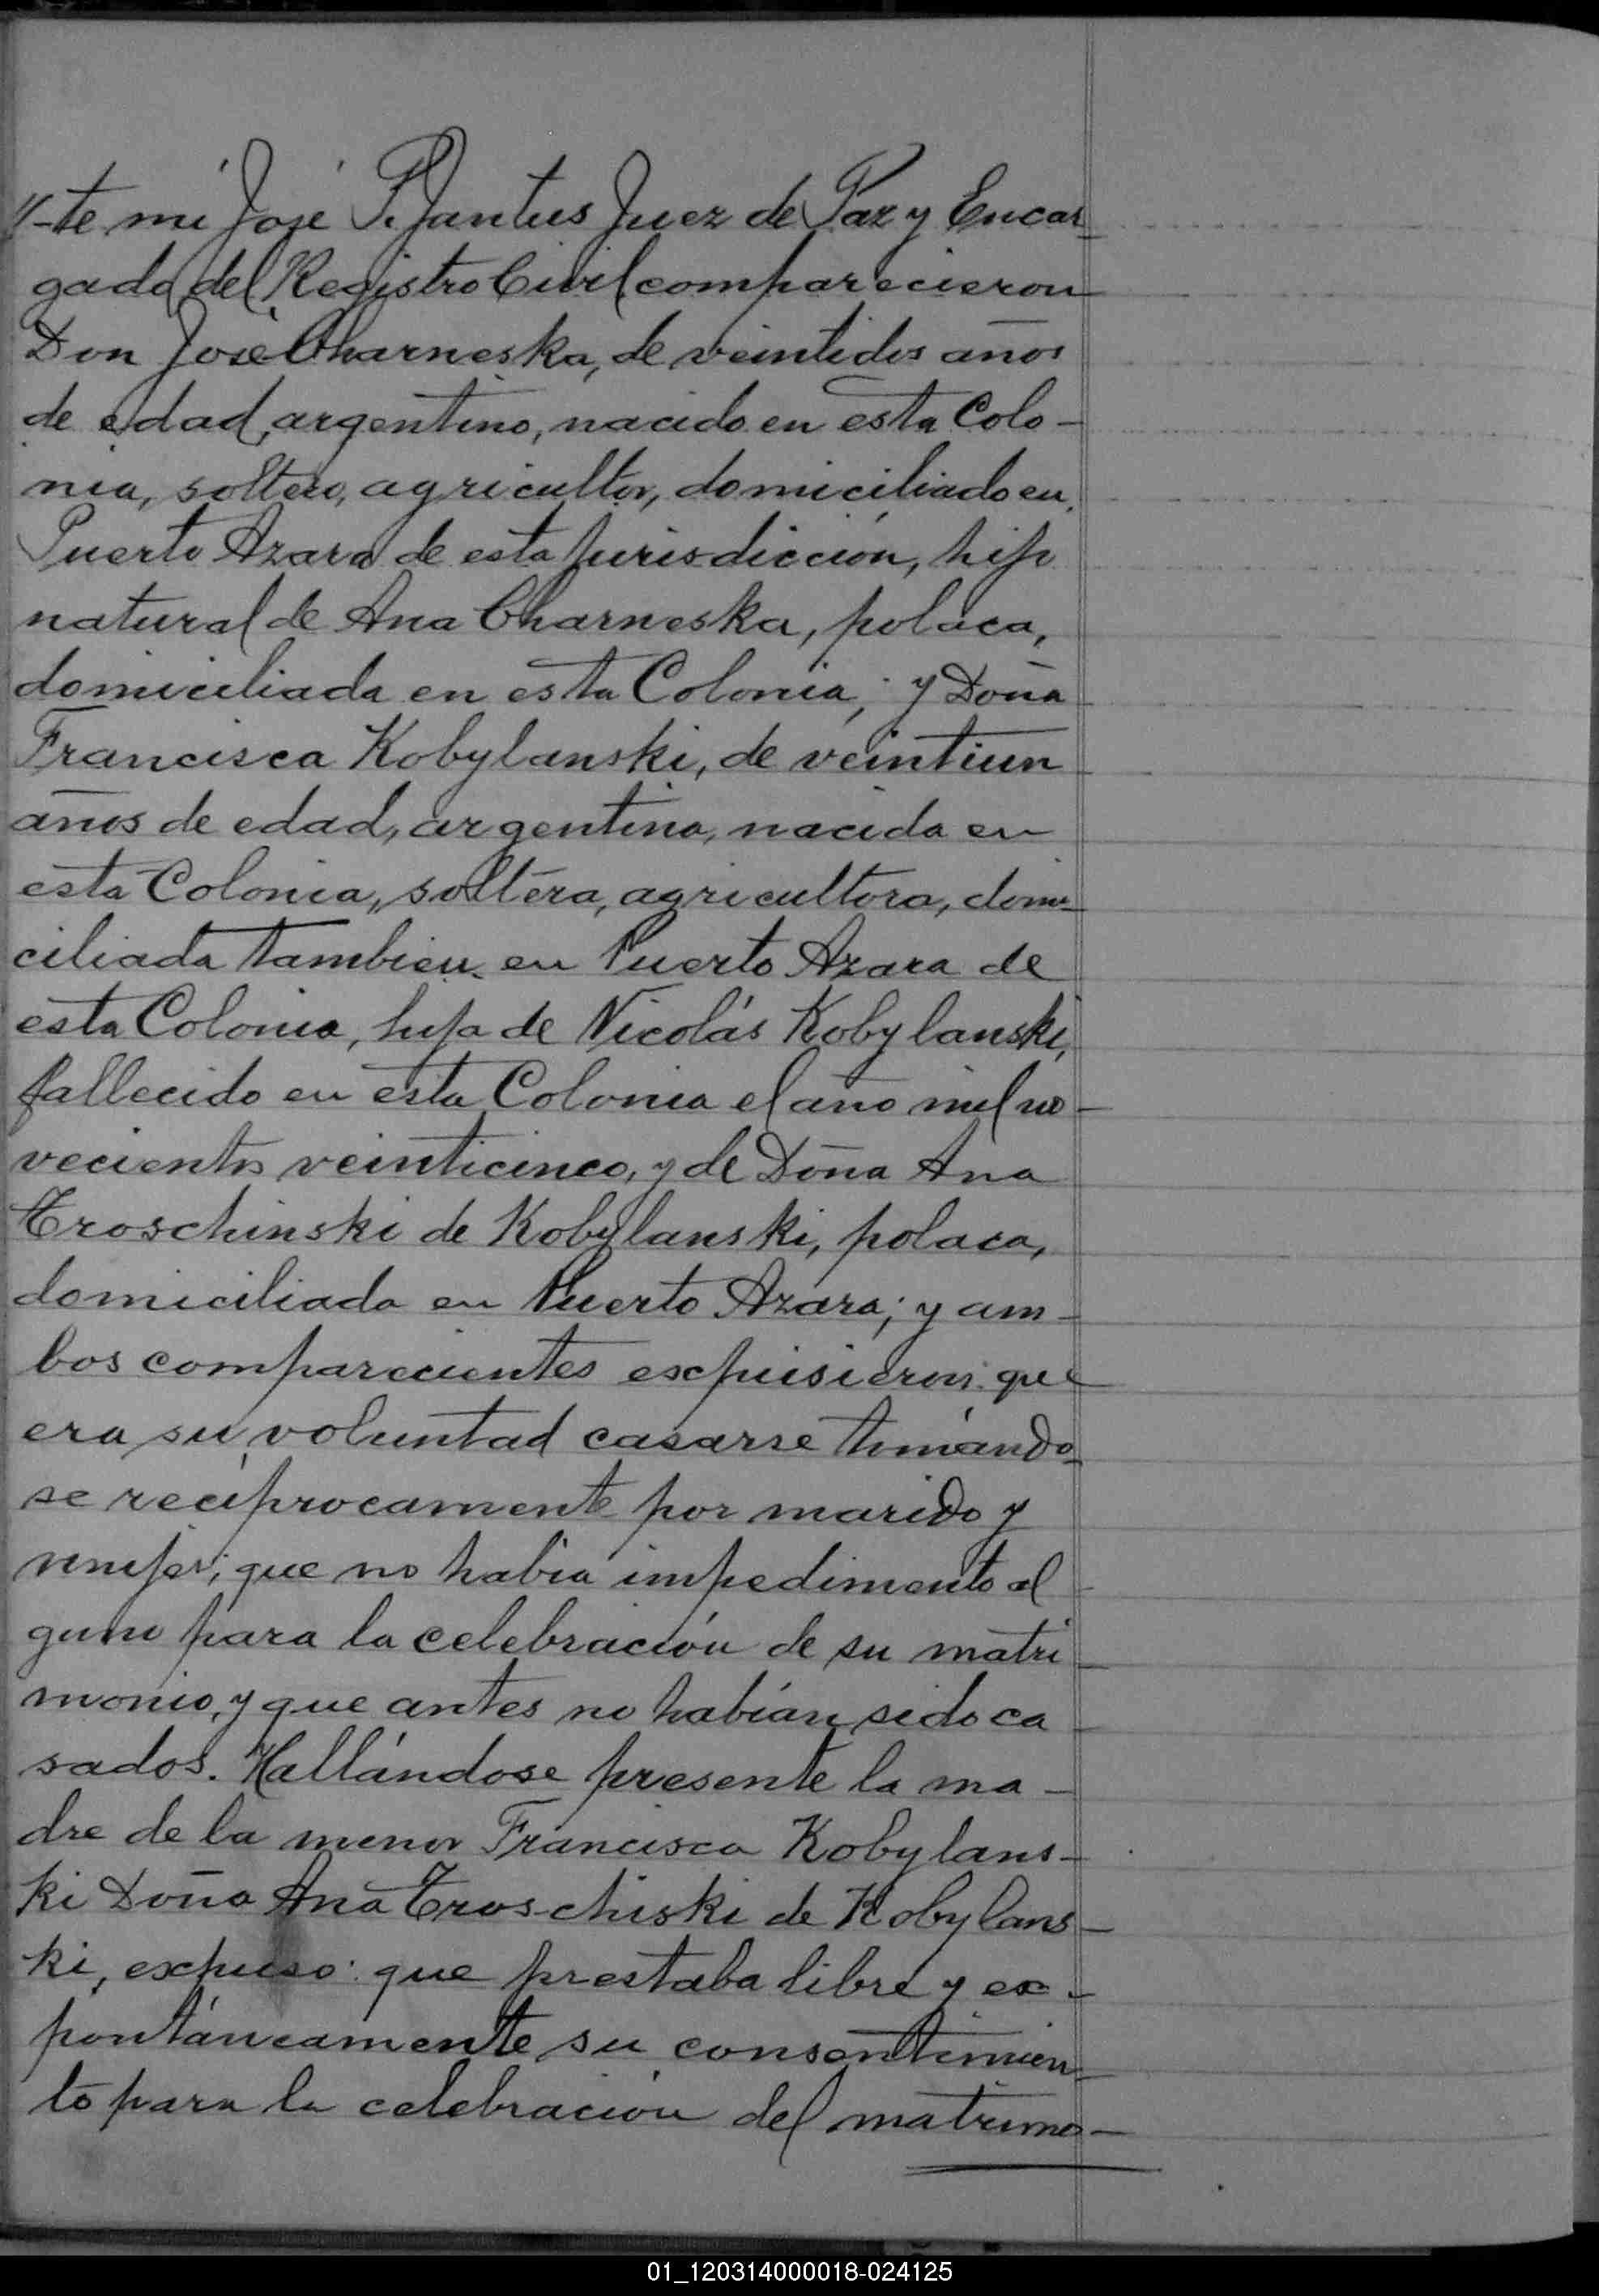 "-te mi José P. Jantus Juez de Paz y Encar-
gado del Registro Civil comparecieron
Don José Charneska, de veintidos años
de edad, argentino, nacido en esta Colo-
nia, soltero, agricultor, domiciliado en
Puerto Azara de esta Jurisdicción, hijo
natural de Ana Charneska, polaca,
domiciliada en esta Colonia; y Doña
Francisca Kobylanski, de veintiun
años de edad, argentina, nacida en
esta Colonia, soltera, agricultora, domi-
ciliada tambien en Puerto Azara de
esta Colonia, hija de Nicolás Kobylanski,
fallecido en esta Colonia el año mil no-
vecientos veinticinco, y de Doña Ana
Troschinski de Kobylanski, polaca,
domiciliada en Puerto Azara; y am-
bos comparecientes expusieron: que
era su voluntad casarse tomándo-
se recíprocamente por marido y
mujer; que no habia impedimento al
guno para la celebración de su matri
monio, y que antes no habían sido ca
sados. Hallándose presente la ma-
dre de la menor Francisca Kobylans-
ki Doña Ana Troschiski de Kobylans-
ki, expuso: que prestaba libre y ex-
pontáneamente su consentimien-
to para la celebración del matrimo-
01_120314000018-024125